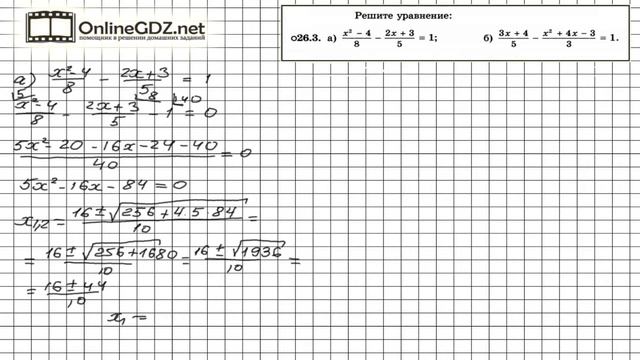 OnlineGDZ.net
помощник в решении домашних заданий
Решите уравнение:
о26.3. а) (x² − 4)/8 − (2x + 3)/5 = 1; б) (3x + 4)/5 − (x² + 4x − 3)/3 = 1.
а) (x² − 4)/8 − (2x + 3)/5 = 1
5⌋ 8⌋ 40⌋
(x² − 4)/8 − (2x + 3)/5 − 1 = 0
(5x² − 20 − 16x − 24 − 40)/40 = 0
5x² − 16x − 84 = 0
x₁,₂ = (16 ± √(256 + 4·5·84))/10 =
= (16 ± √(256 + 1680))/10 = (16 ± √1936)/10 =
= (16 ± 44)/10
x₁ =